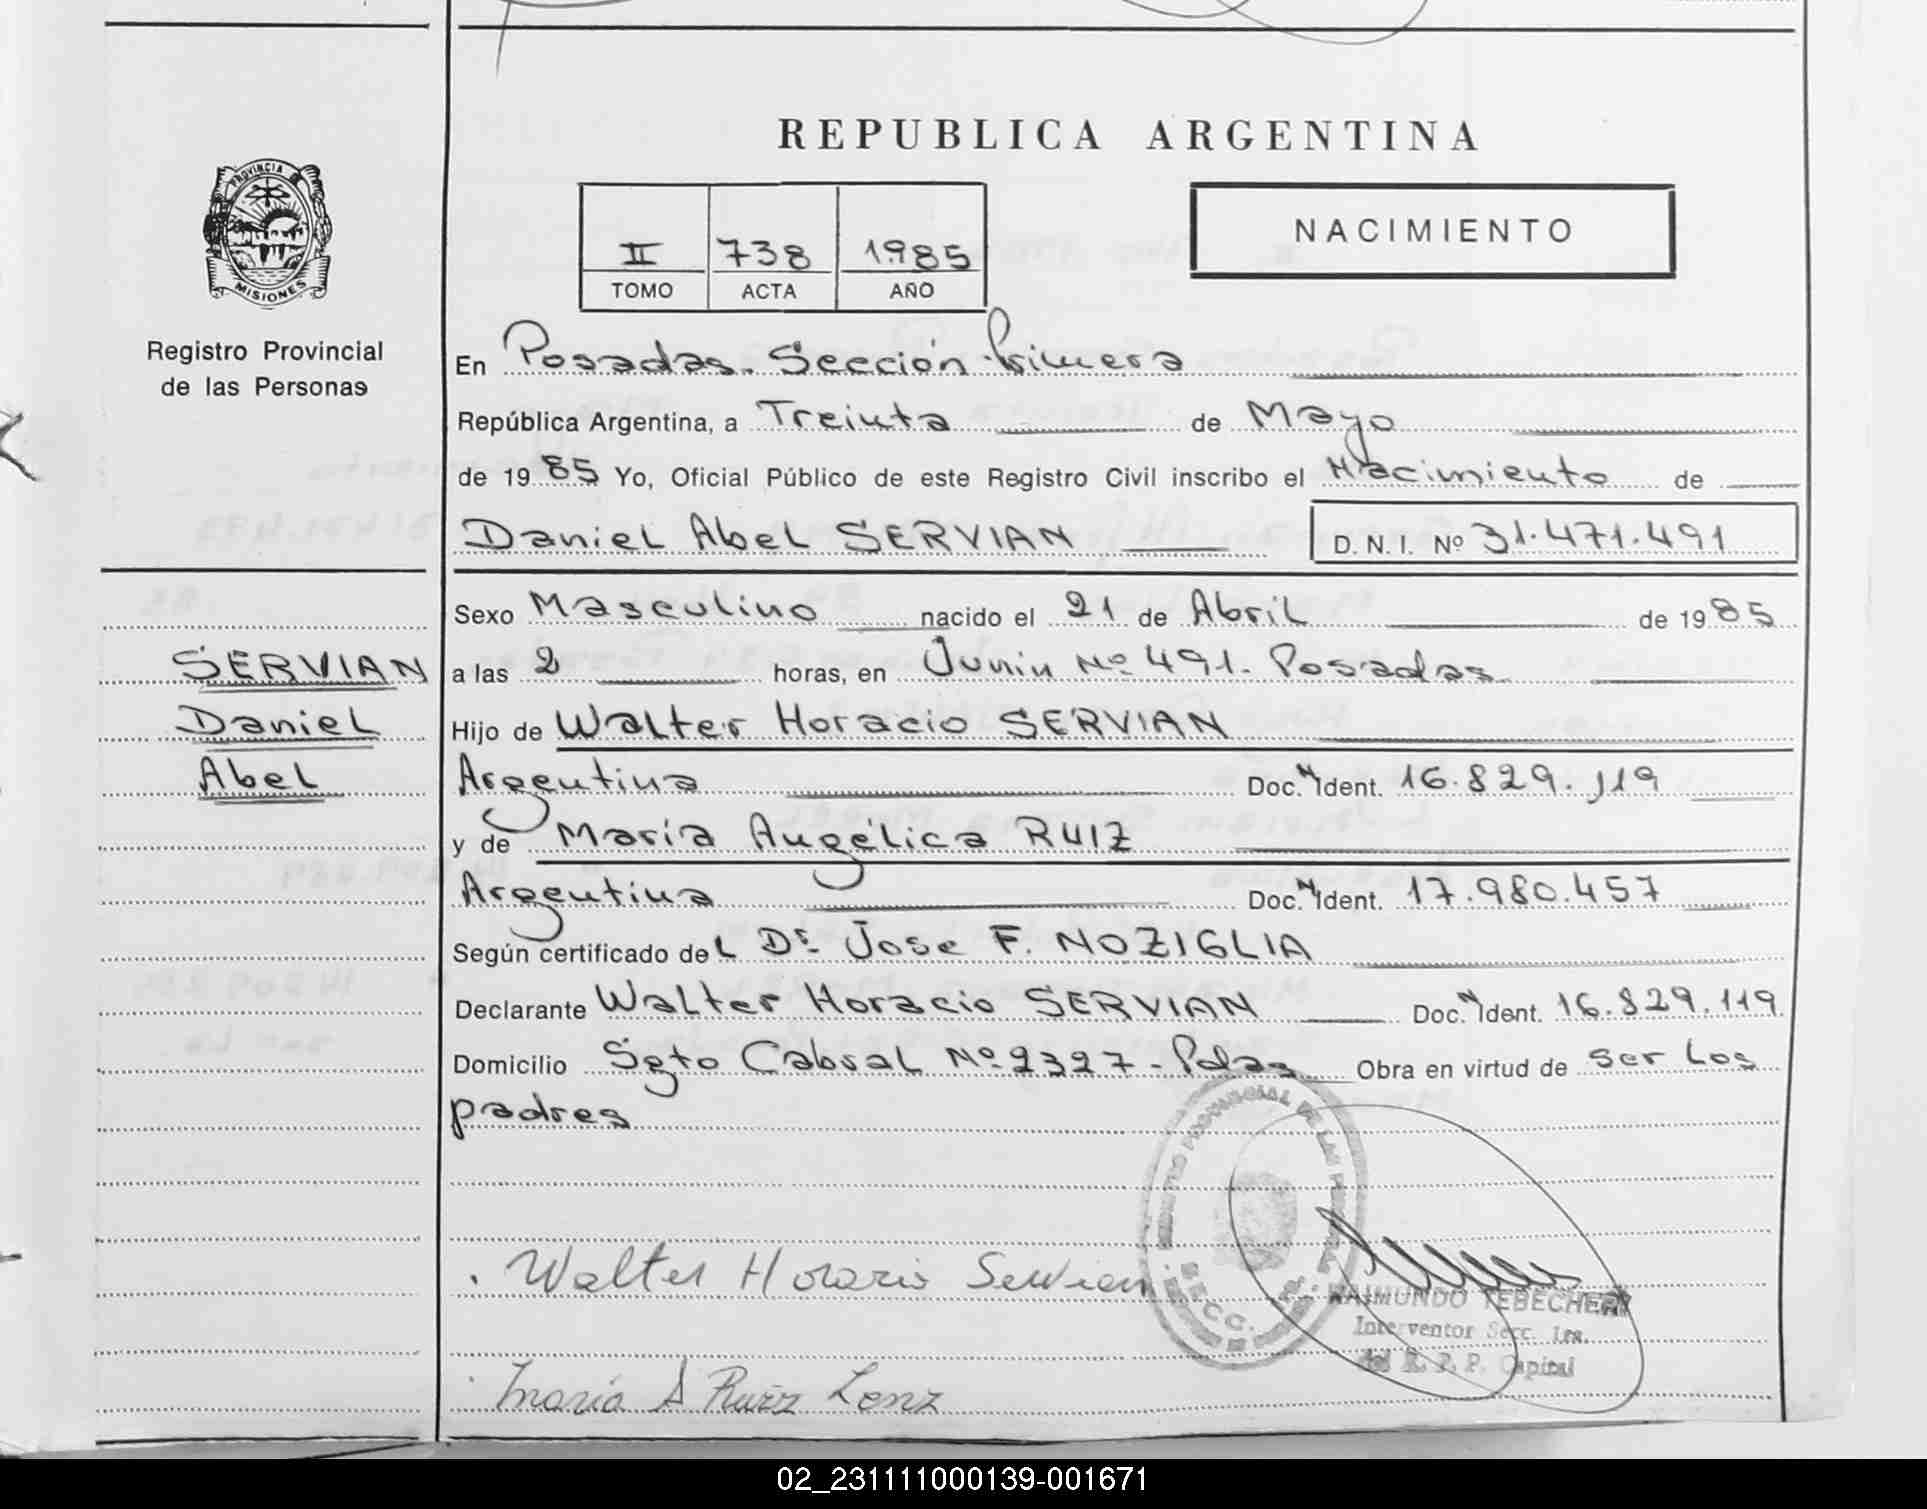 REPUBLICA ARGENTINA
PROVINCIA DE
MISIONES
Registro Provincial
de las Personas
II 738 1985
TOMO ACTA AÑO
NACIMIENTO
En Posadas. Sección Primera
República Argentina, a Treinta de Mayo
de 1985 Yo, Oficial Público de este Registro Civil inscribo el Nacimiento de
Daniel Abel SERVIAN D.N.I. Nº 31.471.491
Sexo Masculino nacido el 21 de Abril de 1985
SERVIAN
Daniel
Abel
a las 2 horas, en Junin Nº 491. Posadas
Hijo de Walter Horacio SERVIAN
Argentina Doc. N Ident. 16.829.119
y de María Angélica RUIZ
Argentina Doc. N Ident. 17.980.457
Según certificado del Dr. Jose F. NOZIGLIA
Declarante Walter Horacio SERVIAN Doc. N Ident. 16.829.119
Domicilio Sgto Cabral Nº 2327 - Pdas Obra en virtud de ser los
padres
REGISTRO PROVINCIAL DE LAS PERSONAS
SECC. 1ª
Walter Horacio Servian
RAIMUNDO TEBECHERY
Interventor Secc. 1ra.
del R. P. P. Capital
María A Ruiz Lenz
02_231111000139-001671